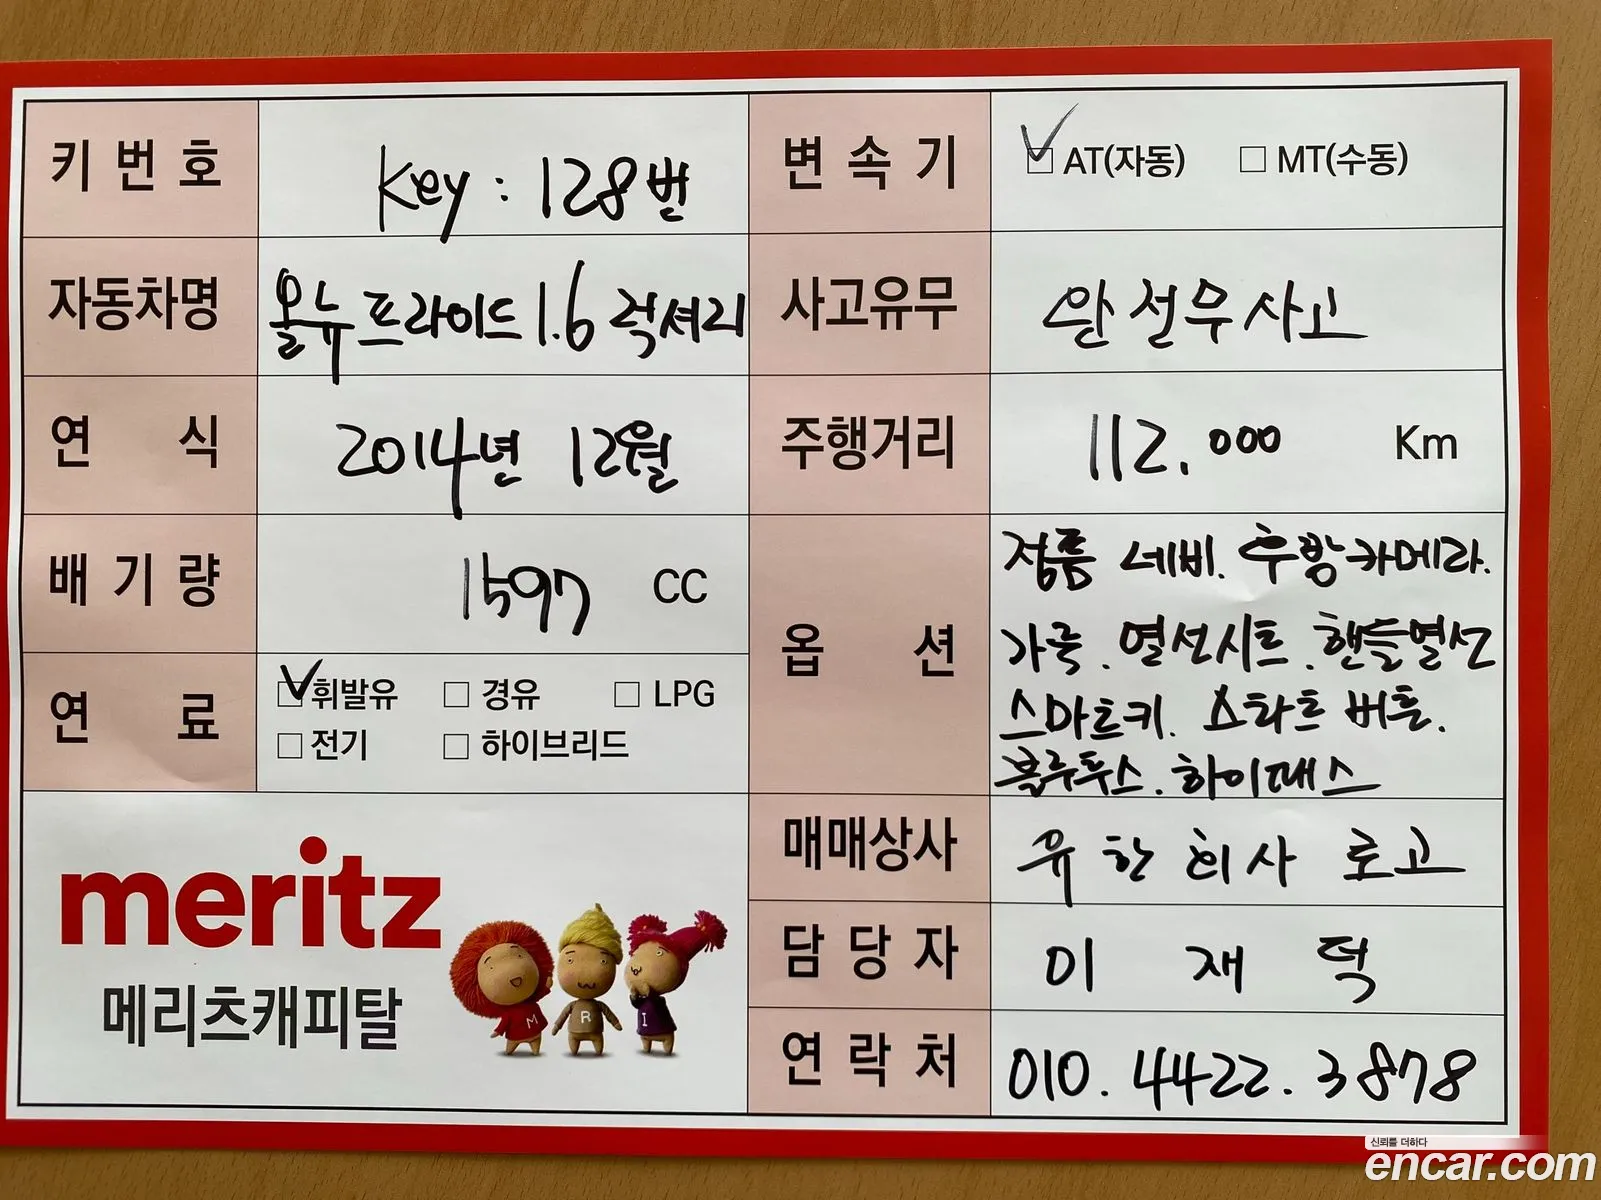 키 번 호 Key : 128번
변 속 기 AT(자동) MT(수동)
자동차명 올뉴프라이드 1.6 럭셔리
사고유무 완전무사고
연 식 2014년 12월
주행거리 112.000 Km
배 기 량 1597 CC
옵 션
정품 네비. 후방카메라.
가죽. 열선시트. 핸들열선
스마트키. 스타트버튼.
블루투스. 하이패스
연 료 휘발유 경유 LPG
전기 하이브리드
매매상사 유한회사 로고
담 당 자 이 재 덕
연 락 처 010. 4422. 3878
meritz
메리츠캐피탈
M R I
신뢰를 더하다
encar.com